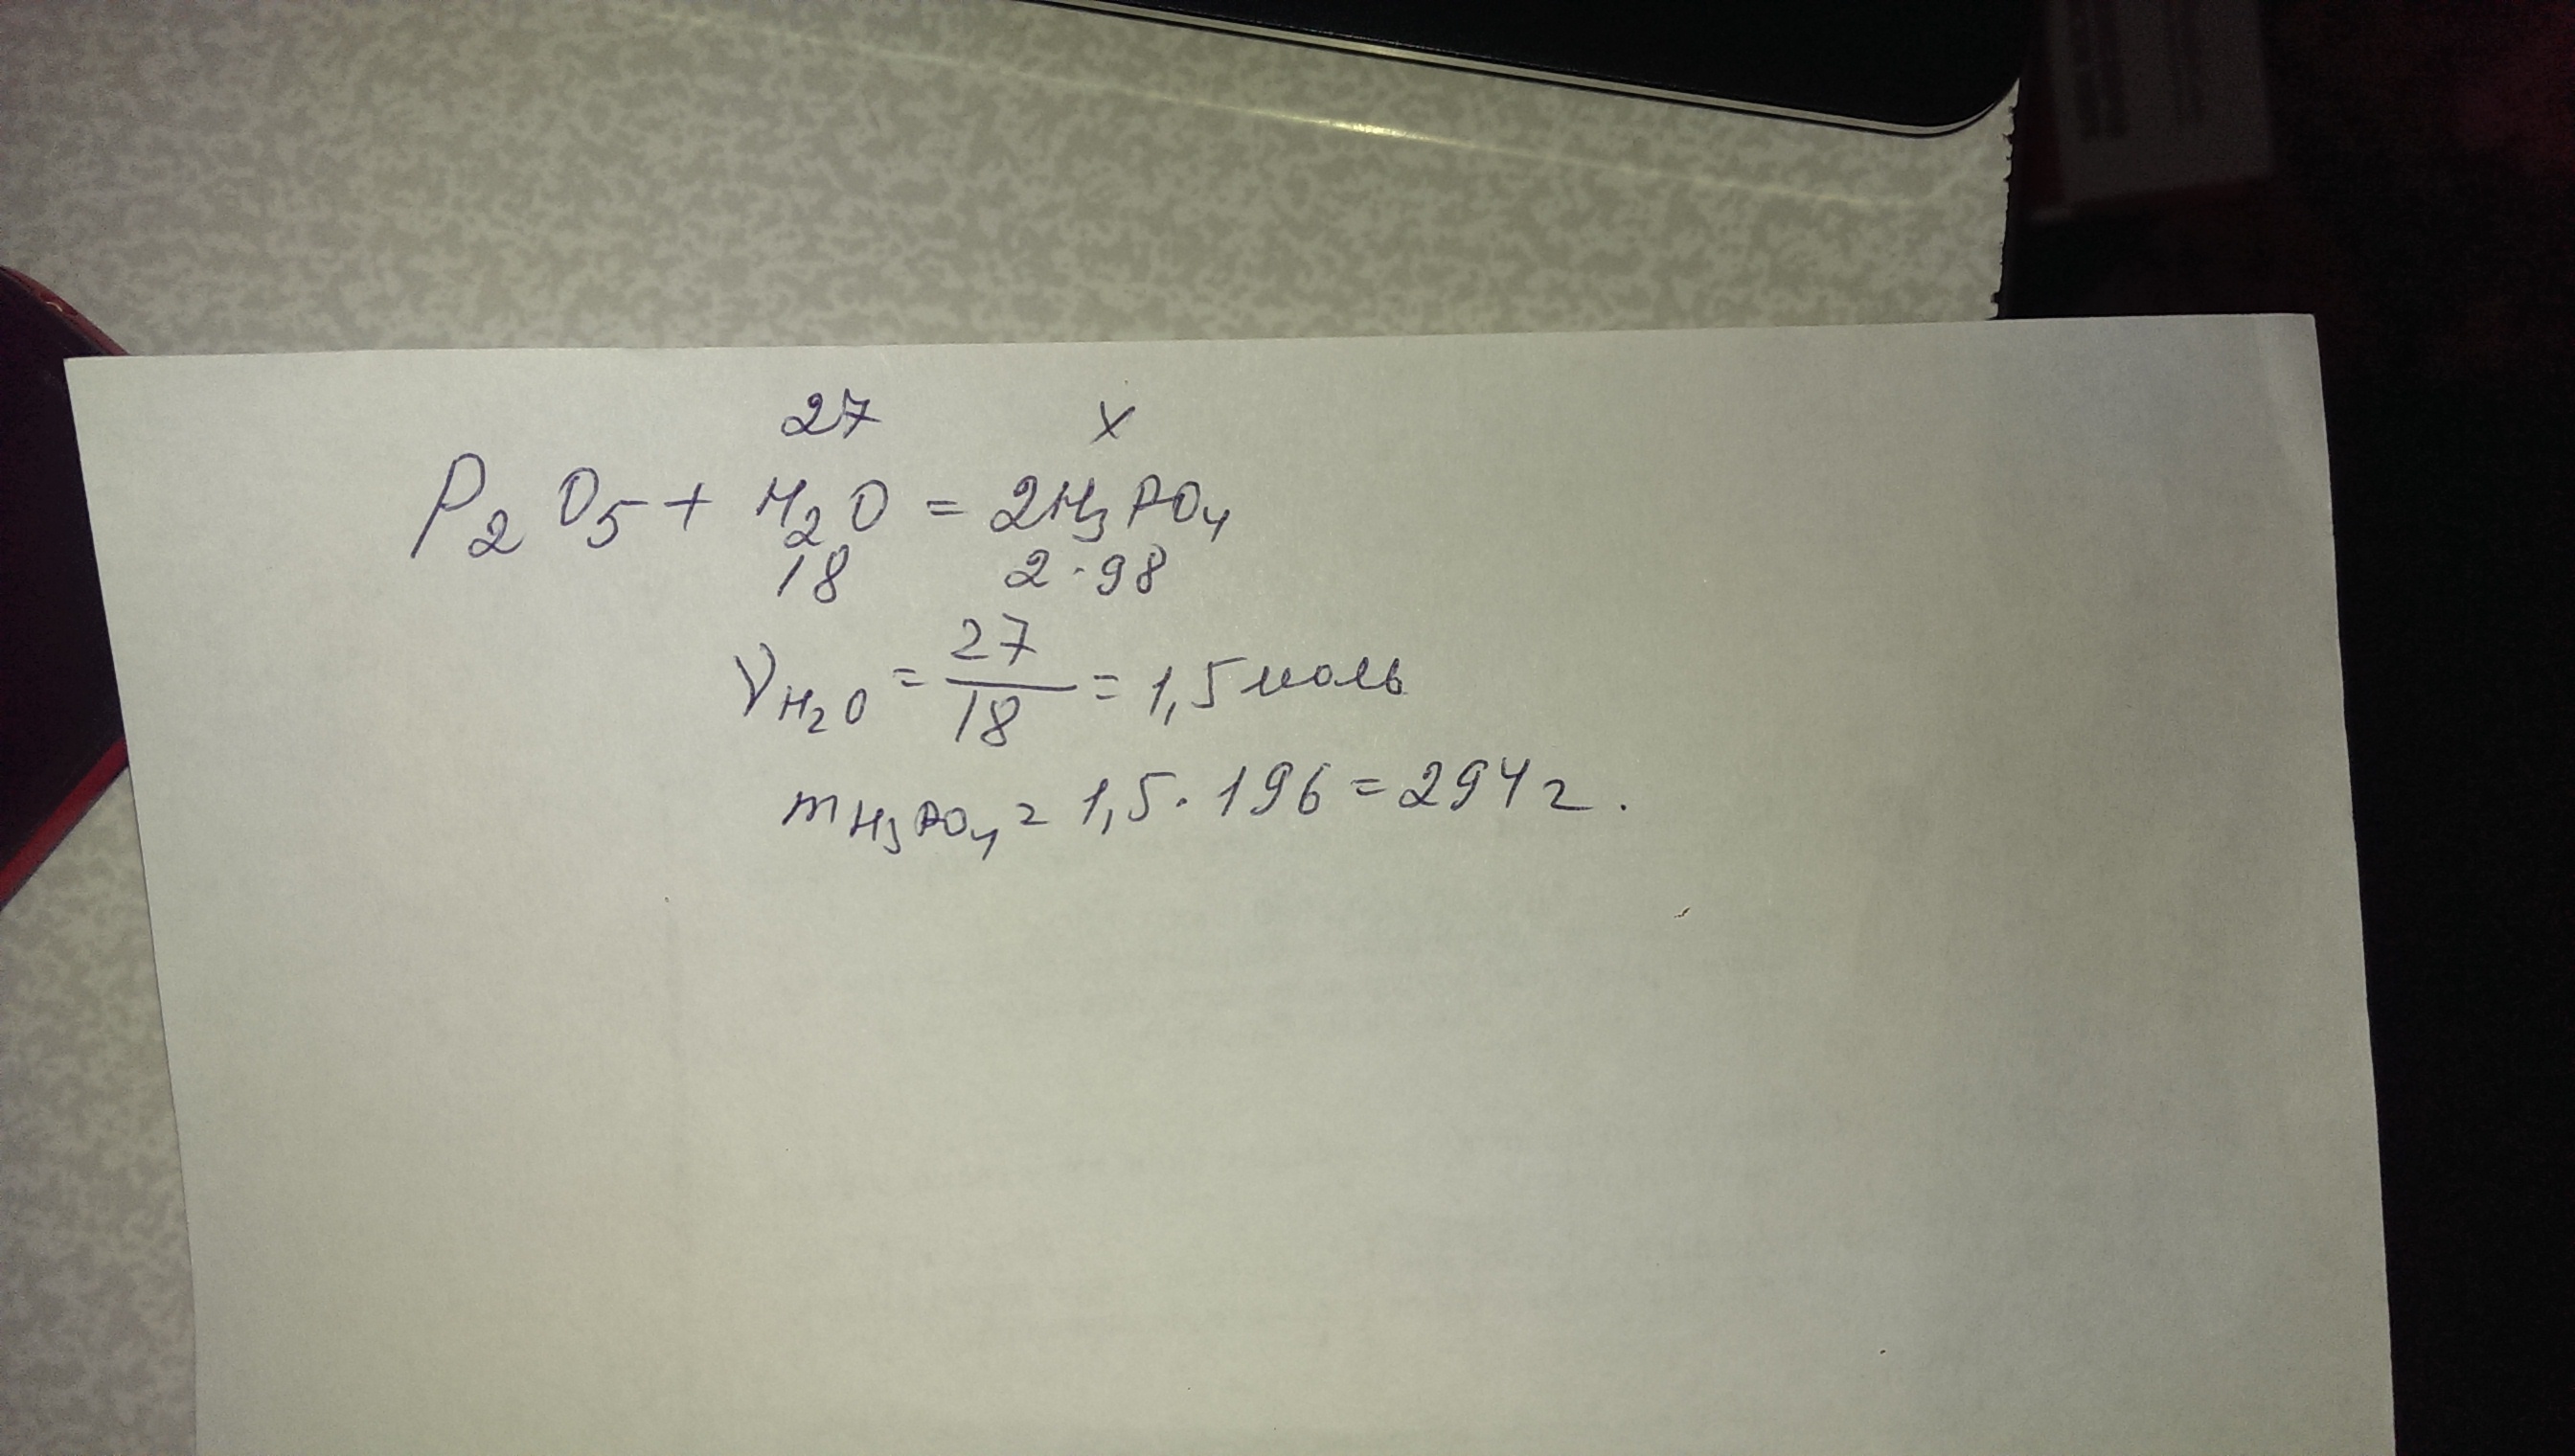 27 x
P₂O₅ + H₂O = 2H₃PO₄
18 2·98
νH₂O = 27/18 = 1,5 моль
mH₃PO₄ = 1,5 · 196 = 294 г.